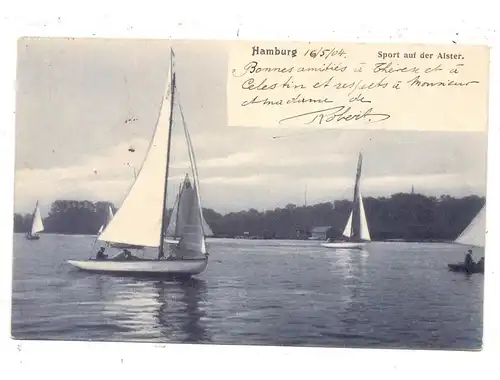 Hamburg 16/5/04. Sport auf der Alster.
Bonnes amitiés à Thérèz et à
Celestin et respects à Monsieur
et Madame de
Robert.